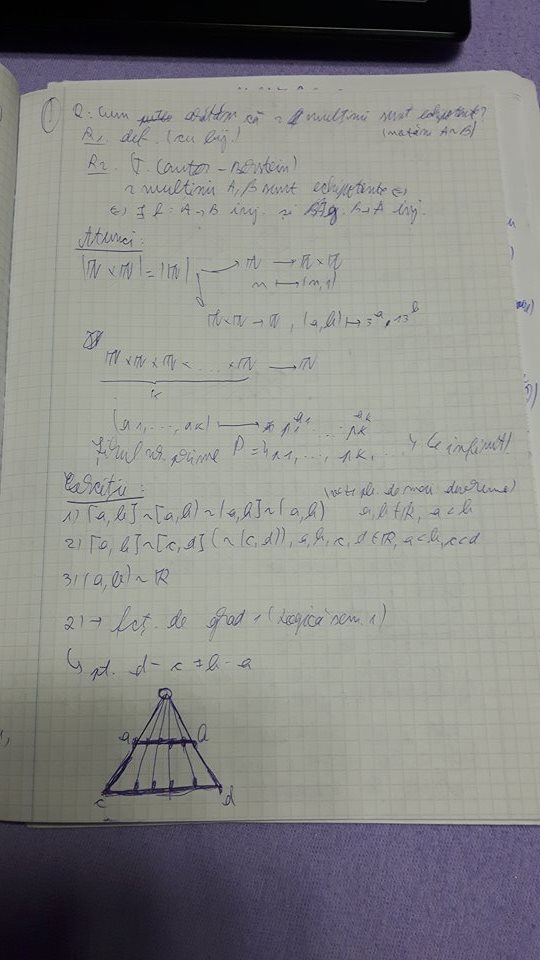 ① Q: Cum arătăm că 2 mulțimi sunt echipotente?
R1. def. (cu bij.) (notăm A~B)
R2. (T. Cantor-Bernstein)
2 mulțimi A, B sunt echipotente ⇔
⇔ ∃ f: A→B inj. și ∃ g: B→A inj.
Atunci:
|ℕ×ℕ| = |ℕ| → ℕ → ℕ×ℕ
n ↦ (n,1)
ℕ×ℕ → ℕ, (a,b) ↦ 3^a · 13^b
ℕ×ℕ×ℕ×...×ℕ → ℕ
k
(a1,...,ak) ↦ p1^a1 ... pk^ak
Șirul nr. prime P = {p1,..., pk,...} (e infinit)
Exerciții:
1) [a,b] ~ [a,b) ~ (a,b] ~ (a,b) a,b∈ℝ, a<b
2) [a,b] ~ [c,d] (~ (c,d)), a,b,c,d∈ℝ, a<b, c<d
3) (a,b) ~ ℝ
2) → fct. de grad 1 (Logică sem. 1)
↳ pt. d-c ≠ b-a
a b
c d